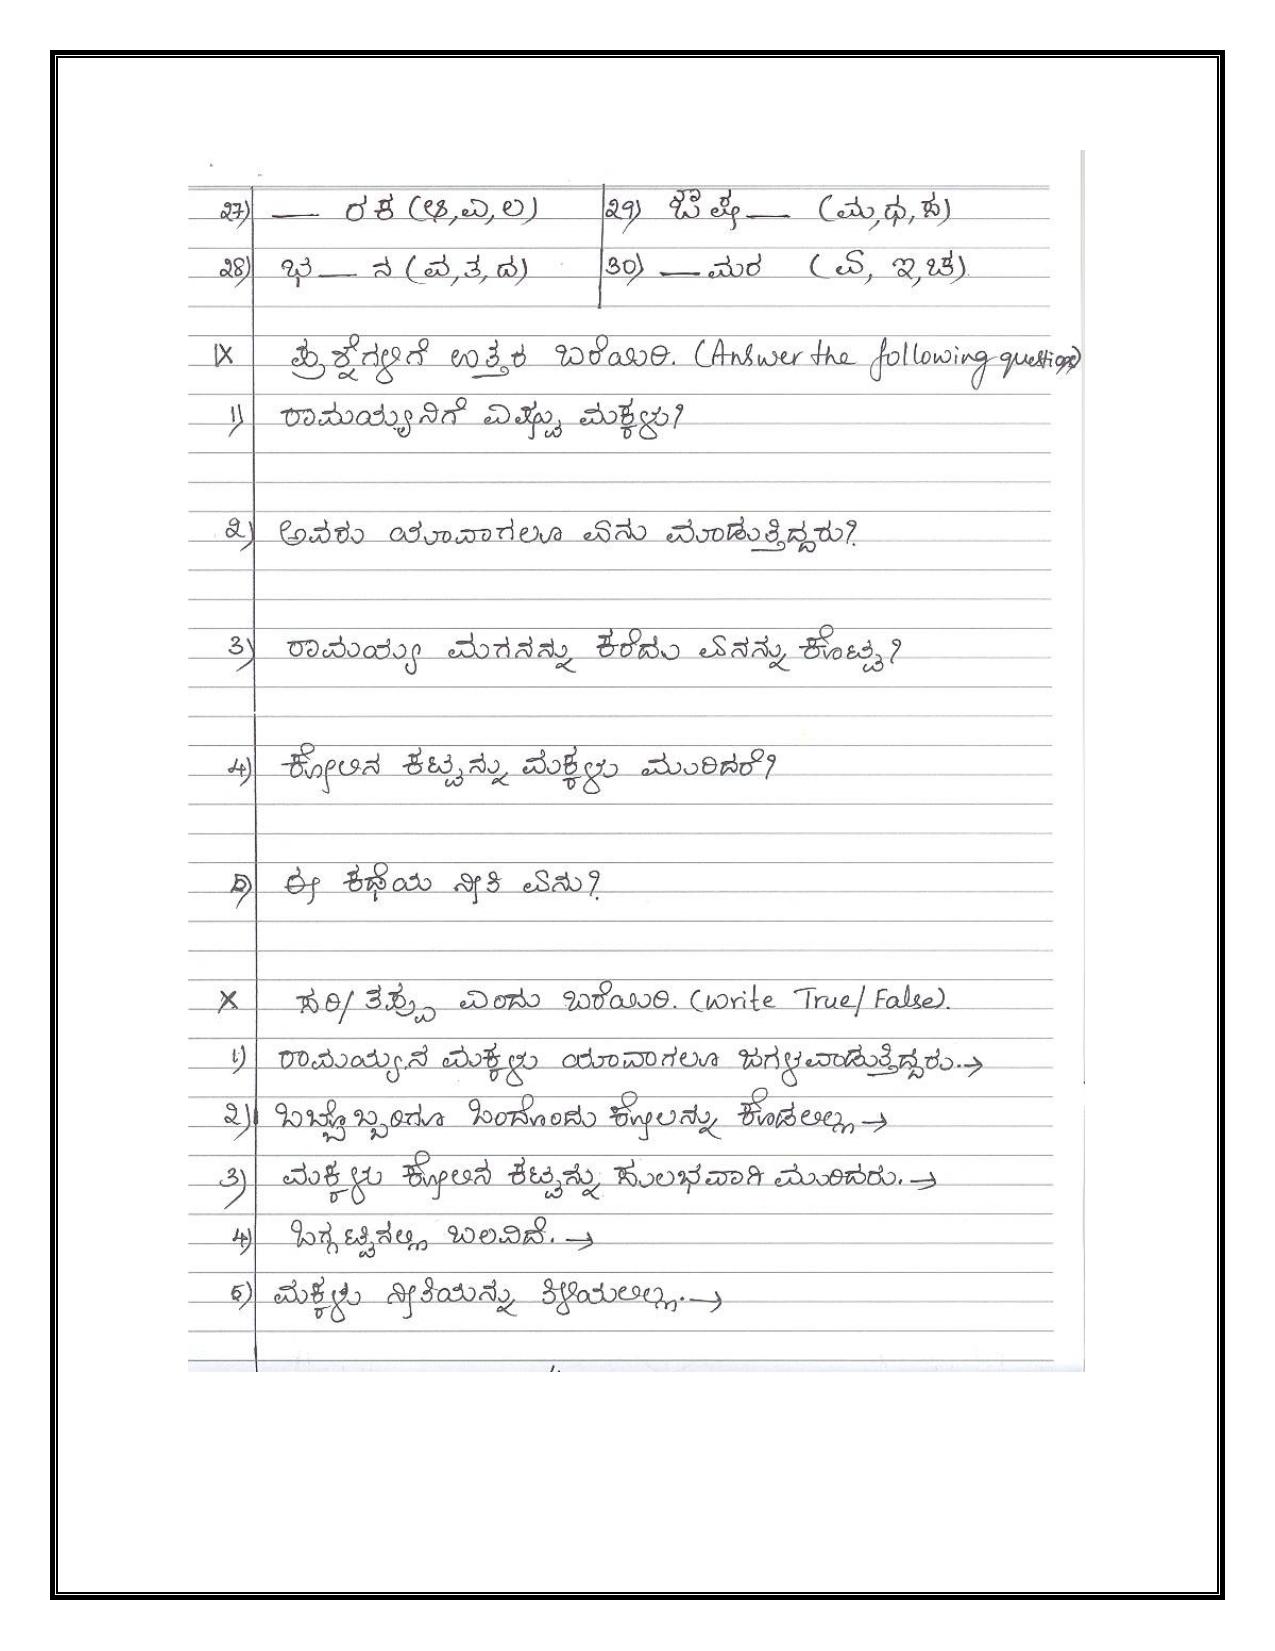 27) — ರಕ (ಆ, ಎ, ಲ) 29) ಔಷ — (ಮ, ಧ, ಹ)
28) ಭ — ನ (ವ, ತ, ದ) 30) — ಮರ (ಏ, ಇ, ಚ)
IX ಪ್ರಶ್ನೆಗಳಿಗೆ ಉತ್ತರ ಬರೆಯಿರಿ. (Answer the following questions)
1) ರಾಮಯ್ಯನಿಗೆ ಎಷ್ಟು ಮಕ್ಕಳು?
2) ಅವರು ಯಾವಾಗಲೂ ಏನು ಮಾಡುತ್ತಿದ್ದರು?
3) ರಾಮಯ್ಯ ಮಗನನ್ನು ಕರೆದು ಏನನ್ನು ಕೊಟ್ಟ?
4) ಕೋಲಿನ ಕಟ್ಟನ್ನು ಮಕ್ಕಳು ಮುರಿದರೆ?
5) ಈ ಕಥೆಯ ನೀತಿ ಏನು?
X ಸರಿ/ ತಪ್ಪು ಎಂದು ಬರೆಯಿರಿ. (Write True/ False).
1) ರಾಮಯ್ಯನ ಮಕ್ಕಳು ಯಾವಾಗಲೂ ಜಗಳವಾಡುತ್ತಿದ್ದರು.→
2) ಒಬ್ಬೊಬ್ಬರಿಗೂ ಒಂದೊಂದು ಕೋಲನ್ನು ಕೊಡಲಿಲ್ಲ →
3) ಮಕ್ಕಳು ಕೋಲಿನ ಕಟ್ಟನ್ನು ಸುಲಭವಾಗಿ ಮುರಿದರು.→
4) ಒಗ್ಗಟ್ಟಿನಲ್ಲಿ ಬಲವಿದೆ.→
5) ಮಕ್ಕಳು ನೀತಿಯನ್ನು ತಿಳಿಯಲಿಲ್ಲ.→